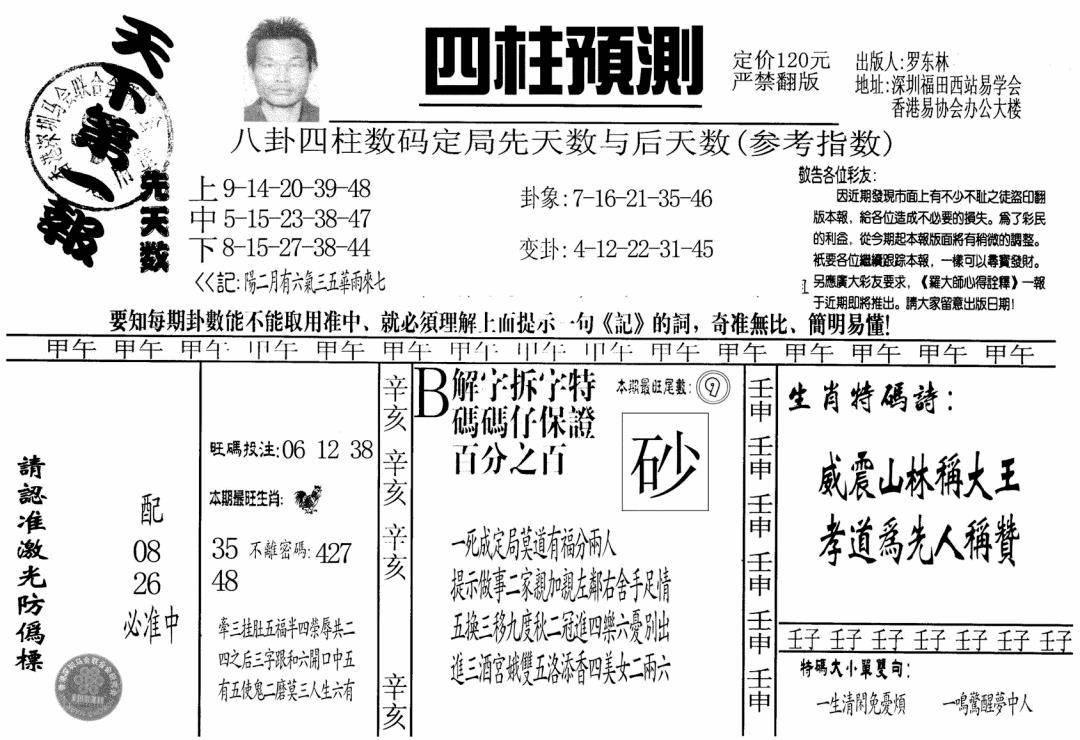 天下第一報
四柱預測
定价120元
严禁翻版
出版人:罗东林
地址:深圳福田西站易学会
香港易协会办公大楼
八卦四柱数码定局先天数与后天数(参考指数)
先天数
上9-14-20-39-48
中5-15-23-38-47
下8-15-27-38-44
<<記:陽二月有六氣三五華雨來七
卦象:7-16-21-35-46
变卦:4-12-22-31-45
敬告各位彩友:
因近期發現市面上有不少不耻之徒盜印翻
版本報,給各位造成不必要的損失。爲了彩民
的利益,從今期起本報版面將有稍微的調整。
衹要各位繼續跟踪本報,一樣可以尋寶發財。
另應廣大彩友要求,《羅大師心得詮釋》一報
于近期即將推出。請大家留意出版日期!
要知每期卦數能不能取用准中、就必須理解上面提示一句《記》的詞,奇准無比、簡明易懂!
甲午 甲午 甲午 甲午 甲午 甲午 甲午 甲午 甲午 甲午 甲午 甲午 甲午 甲午 甲午
請認准激光防僞標
配
08
26
必准中
旺碼投注:06 12 38
本期最旺生肖:
35 不離密碼:427
48
牽三挂肚五福半四榮辱共二
四之后三字跟和六開口中五
有五使鬼二磨莫三人生六有
辛亥
辛亥
辛亥
辛亥
B解字拆字特
碼碼仔保證
百分之百
本期最旺尾數:9
砂
一死成定局莫道有福分兩人
提示做事二家親加親左鄰右舍手足情
五換三移九度秋二冠進四樂六憂別出
進三酒宮娥雙五洛添香四美女二兩六
壬申
壬申
壬申
壬申
壬申
壬申
生肖特碼詩:
威震山林稱大王
孝道爲先人稱贊
壬子 壬子 壬子 壬子 壬子 壬子 壬子
特碼大小單雙句:
一生清閑免憂煩 一鳴驚醒夢中人